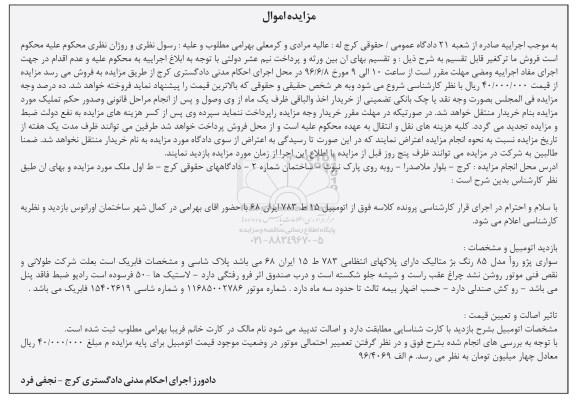 مزایده اموال
به موجب اجراییه صادره از شعبه ۲۱ دادگاه عمومی / حقوقی کرج له : عالیه مرادی و کرمعلی بهرامی مطلوب و علیه : رسول نظری و روژان نظری محکوم علیه محکوم
است فروش ما ترکغیر قابل تقسیم به شرح ذیل : و تقسیم بهای ان بین ورثه و پرداخت نیم عشر دولتی با توجه به ابلاغ اجراییه به محکوم علیه و عدم اقدام در جهت
اجرای مفاد اجراییه ومضی مهلت مقرر است از ساعت ۱۰ الی ۹ مورخ ۹۶/۶/۸ در محل اجرای احکام مدنی دادگستری کرج از طریق مزایده به فروش می رسد مزایده
از قیمت ۴۰/۰۰۰/۰۰۰ ریال با نظر کارشناسی شروع می شود وبه هر شخص حقیقی و حقوقی که بالاترین قیمت را پیشنهاد نماید فروخته خواهد شد. ده درصد وجه
مزایده فی المجلس بصورت وجه نقد یا چک بانکی تضمینی از خریدار اخذ والباقی ظرف یک ماه از وی وصول و پس از انجام مراحل قانونی وصدور حکم تملیک مورد
مزایده بنام خریدار منتقل خواهد شد. در صورتیکه در مهلت مقرر خریدار وجه مزایده راپرداخت ننماید سپرده وی پس از کسر هزینه های مزایده به نفع دولت ضبط
و مزایده تجدید می گردد. کلیه هزینه های نقل و انتقال به عهده محکوم علیه است و از محل فروش پرداخت خواهد شد طرفین می توانند ظرف مدت یک هفته از
تاریخ مزایده نسبت به نحوه انجام مزایده اعتراض نمایند که در این صورت تا رسیدگی به اعتراض از سوی دادگاه مورد مزایده به نام خریدار منتقل نخواهد شد. ضمنا
طالبین به شرکت در مزایده می توانند ظرف پنج روز قبل از مزایده با اطلاع این اجرا از زمان مورد مزایده بازدید نمایند.
ادرس محل انجام مزایده : کرج – بلوار ملاصدرا – روبه روی پارک نبوت – ساختمان شماره ۲ – دادگاههای حقوقی کرج – ط اول ملک مورد مزایده و بهای ان طبق
نظر کارشناس بدین شرح است :
با سلام و احترام در اجرای قرار کارشناسی پرونده کلاسه فوق از اتومبیل ۱۵ ط ۷۸۳ ایران ۶۸ با حضور اقای بهرامی در کمال شهر ساختمان اورانوس بازدید و نظریه
کارشناسی اعلام می شود.
بازدید اتومبیل و مشخصات :
سواری پژو روآ مدل ۸۵ رنگ بژ متالیک دارای پلاکهای انتظامی ۷۸۳ ط ۱۵ ایران ۶۸ می باشد پلاک شاسی و مشخصات فابریک است بعلت شرکت طولانی و
نقص فنی موتور روشن نشد چراغ عقب راست و شیشه جلو شکسته است و درب صندوق اثر فرو رفتگی دارد – لاستیک ها ۵۰- فرسوده است رادیو ضبط فاقد پنل
می باشد – رو کش صندلی دارد – حسب اضهار بیمه ثالث تا حدود سه ماه دارد . شماره موتور ۱۱۶۸۵۰۰۲۷۸۶ و شماره شاسی ۱۵۴۰۲۶۱۹ فابریک می باشد .
تاثیر اصالت و تعیین قیمت :
مشخصات اتومبیل بشرح بازدید با کارت شناسایی مطابقت دارد و اصالت تدیید می شود نام مالک در کارت خانم فریبا بهرامی مطلوب ثبت شده است.
با توجه به بررسی های انجام شده بشرح فوق و در نظر گرفتن تعمییر احتمالی موتور در وضعیت موجود قیمت اتومبیل برای پایه مزایده م مبلغ ۴۰/۰۰۰/۰۰۰ ریال
معادل چهار میلیون تومان به نظر می رسد. م الف ۹۶/۴۰۶۹
دادورز اجرای احکام مدنی دادگستری کرج – نجفی فرد
۰۲۱-۸۸۳۴۹۶۷۰-۵